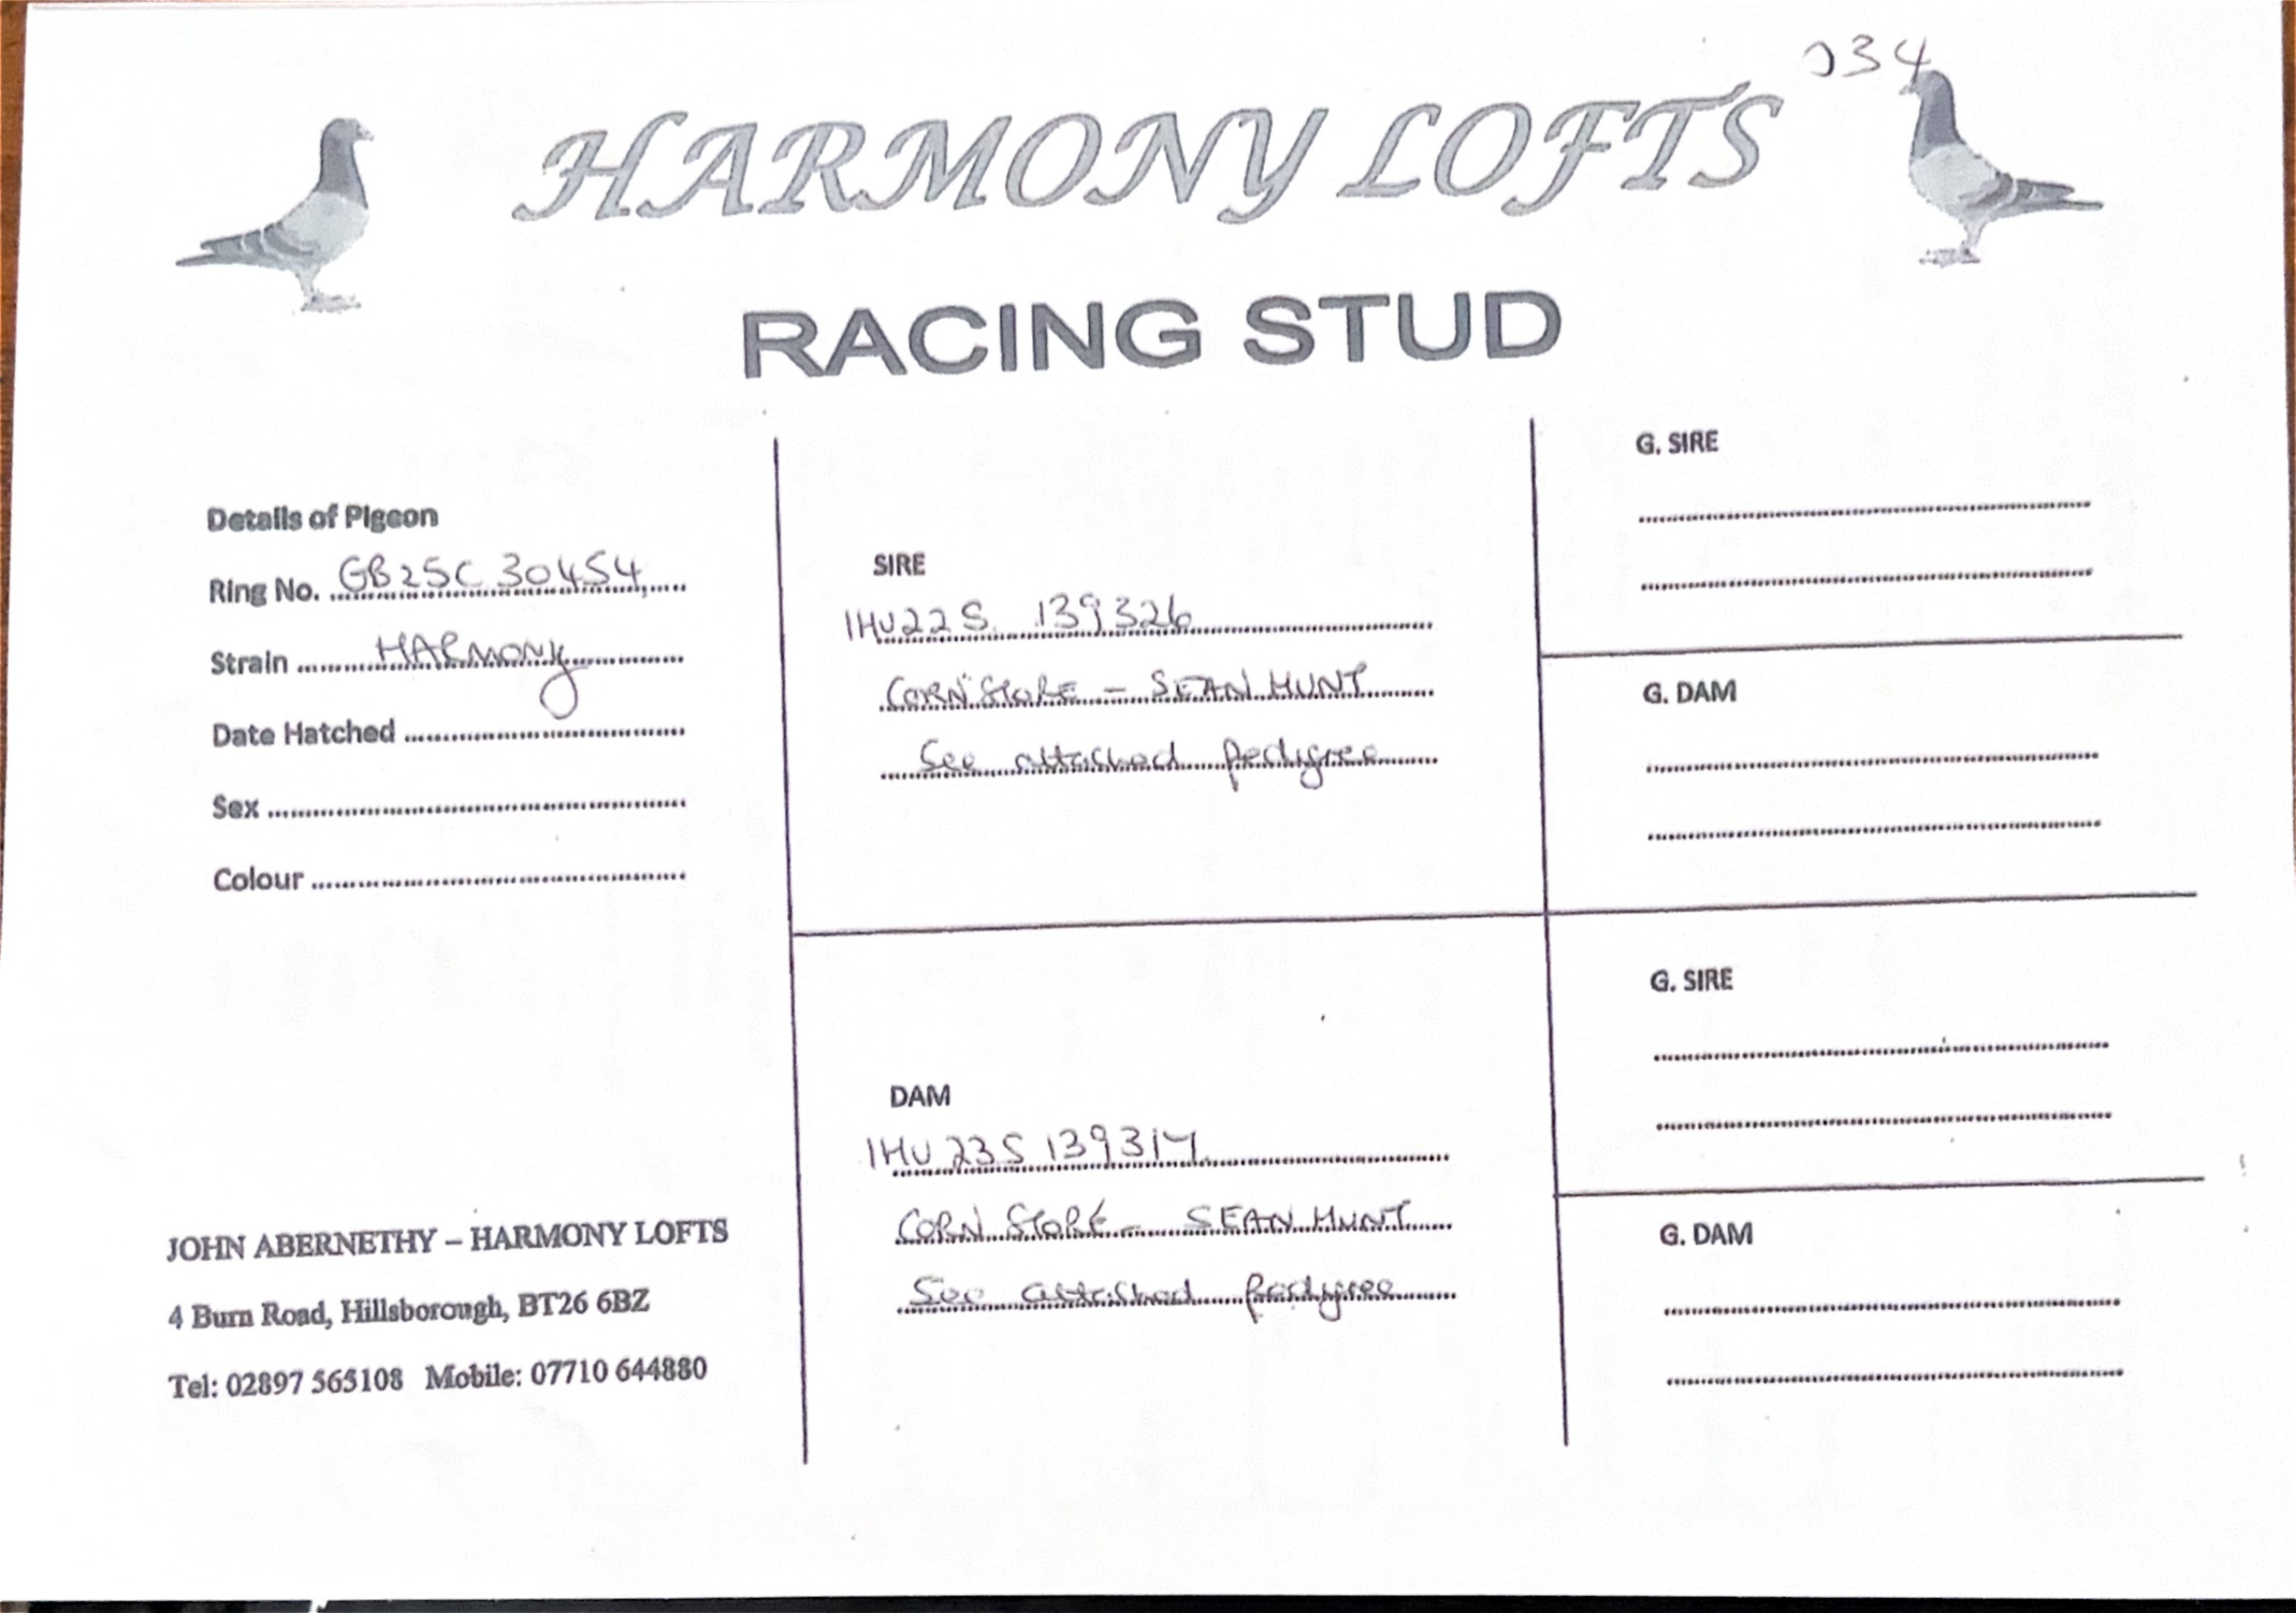 034
HARMONY LOFTS
RACING STUD
Details of Pigeon
Ring No. GB25C 30454
Strain HARMONY
Date Hatched
Sex
Colour
SIRE
IHU22S 139326
CORN STORE - SEAN HUNT
See attached pedigree
DAM
IHU 23S 139314
CORN STORE - SEAN HUNT
See attached pedigree
G. SIRE
G. DAM
G. SIRE
G. DAM
JOHN ABERNETHY – HARMONY LOFTS
4 Burn Road, Hillsborough, BT26 6BZ
Tel: 02897 565108 Mobile: 07710 644880